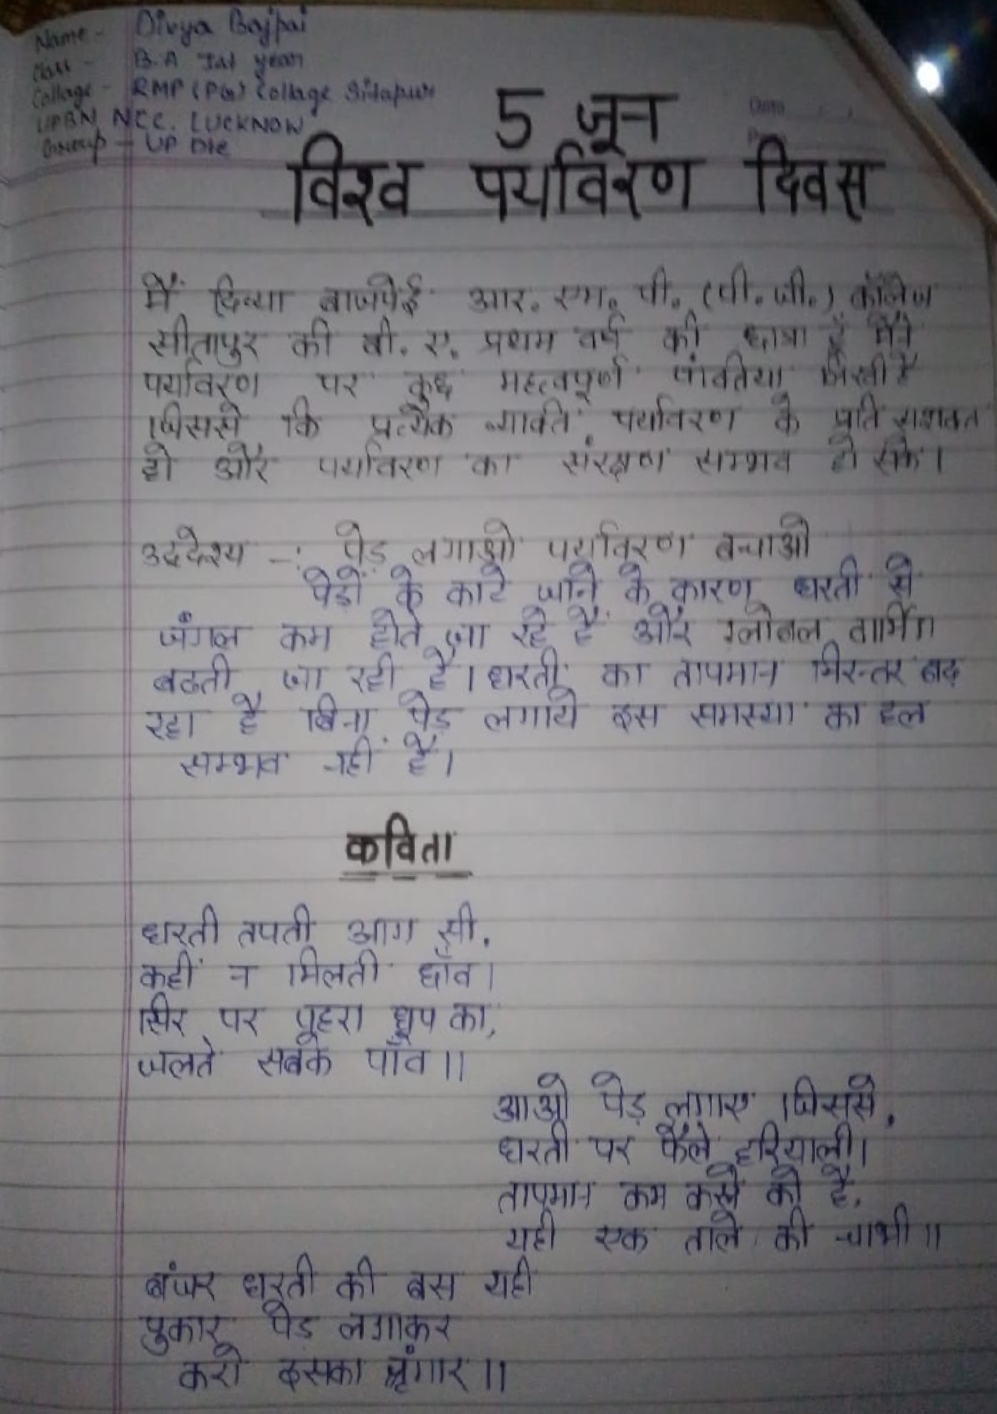 Name - Divya Bajpai
Class - B.A Ist year
Collage - RMP (PG) Collage Sitapur
UPBN NCC, LUCKNOW
Group - UP Dte
Date
5 जून
विश्व पर्यावरण दिवस
मैं दिव्या बाजपेई आर. एम. पी. (पी. जी.) कॉलेज
सीतापुर की बी. ए. प्रथम वर्ष की छात्रा हूँ मैंने
पर्यावरण पर कुछ महत्वपूर्ण पंक्तिया लिखी है
जिससे कि प्रत्येक व्यक्ति पर्यावरण के प्रति सशक्त
हो और पर्यावरण का संरक्षण सम्भव हो सके।
उद्देश्य -: पेड़ लगाओ पर्यावरण बचाओ
पेड़ों के काटे जाने के कारण धरती से
जंगल कम होते जा रहे हैं और ग्लोबल वार्मिंग
बढती जा रही है। धरती का तापमान निरन्तर बढ़
रहा है बिना पेड़ लगाये इस समस्या का हल
सम्भव नहीं है।
कविता
धरती तपती आग सी,
कहीं न मिलती छाँव।
सिर पर पहरा धूप का,
जलते सबके पाँव॥
आओ पेड़ लगाए जिससे,
धरती पर फैले हरियाली।
तापमान कम करने को है,
यही एक ताले की चाभी॥
बंजर धरती की बस यही
पुकार पेड़ लगाकर
करो इसका श्रृंगार॥